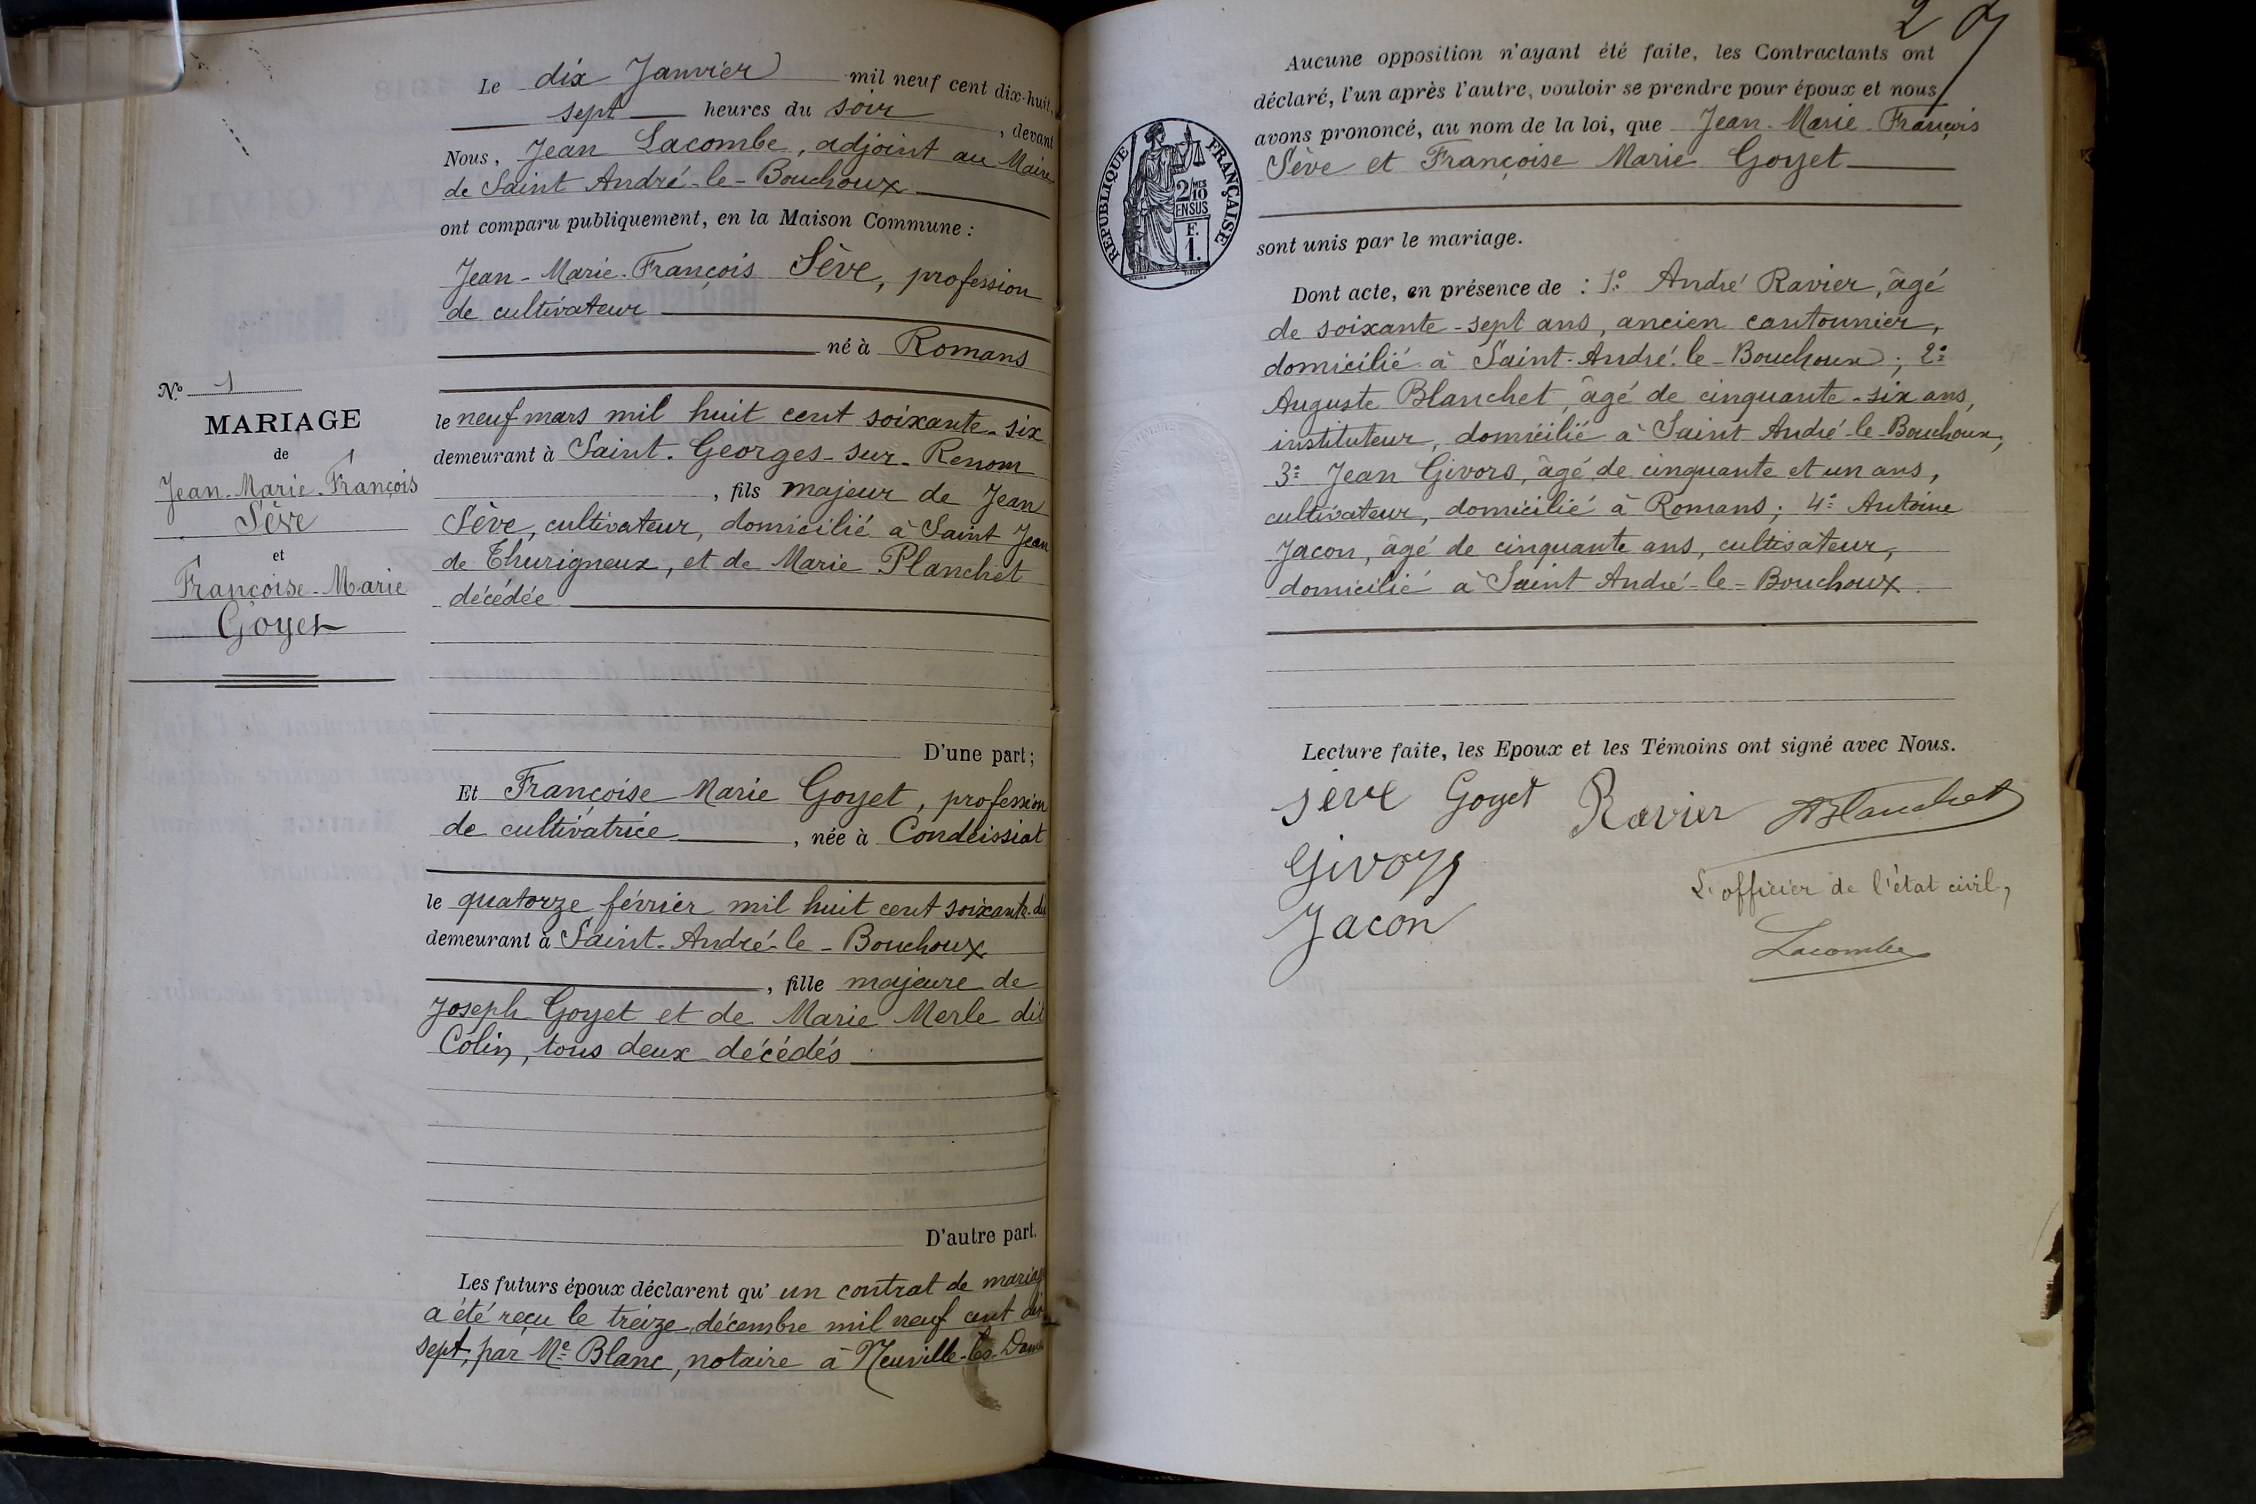 Le dix Janvier mil neuf cent dix-huit,
sept heures du soir, devant
Nous, Jean Lacombe, adjoint au Maire
de Saint André-le-Bouchoux
ont comparu publiquement, en la Maison Commune :
Jean-Marie-François Sève, profession
de cultivateur
né à Romans
le neuf mars mil huit cent soixante-six
demeurant à Saint-Georges-sur-Renom
, fils majeur de Jean
Sève, cultivateur, domicilié à Saint Jean
de Thurigneux, et de Marie Planchet
décédée
D'une part;
Et Françoise Marie Goyet, profession
de cultivatrice, née à Condeissiat
le quatorze février mil huit cent soixante-di
demeurant à Saint-André-le-Bouchoux
, fille majeure de
Joseph Goyet et de Marie Merle dit
Colin, tous deux décédés
D'autre part.
Les futurs époux déclarent qu'un contrat de mariage
a été reçu le treize décembre mil neuf cent dix-
sept, par Me Blanc, notaire à Neuville-les-Dames
No 1
MARIAGE
de
Jean-Marie-François
Sève
et
Françoise-Marie
Goyet
2
Aucune opposition n'ayant été faite, les Contractants ont
déclaré, l'un après l'autre, vouloir se prendre pour époux et nous
avons prononcé, au nom de la loi, que Jean-Marie-François
Sève et Françoise Marie Goyet
sont unis par le mariage.
RÉPUBLIQUE FRANÇAISE
2/10 MES
EN SUS
F.
1.
Dont acte, en présence de : 1° André Ravier, âgé
de soixante-sept ans, ancien cantonnier,
domicilié à Saint-André-le-Bouchoux; 2°
Auguste Blanchet, âgé de cinquante-six ans,
instituteur, domicilié à Saint André-le-Bouchoux,
3° Jean Givors, âgé de cinquante et un ans,
cultivateur, domicilié à Romans; 4° Antoine
Jacon, âgé de cinquante ans, cultivateur,
domicilié à Saint André-le-Bouchoux.
Lecture faite, les Epoux et les Témoins ont signé avec Nous.
Sève Goyet Ravier ABlanchet
Givors
Jacon
L'officier de l'état civil,
Lacombe